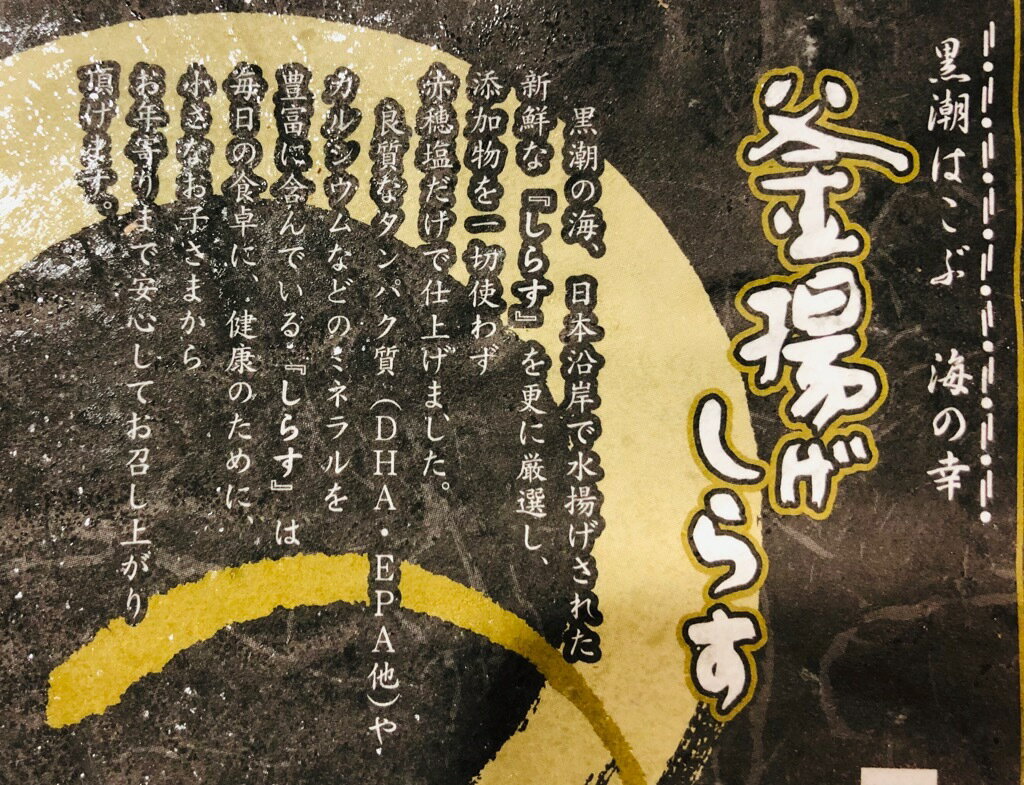 黒潮はこぶ　海の幸
釜揚げ
しらす
黒潮の海、日本沿岸で水揚げされた
新鮮な『しらす』を更に厳選し、
添加物を一切使わず
赤穂塩だけで仕上げました。
良質なタンパク質（DHA・EPA他）や
カルシウムなどのミネラルを
豊富に含んでいる『しらす』は
毎日の食卓に、健康のために、
小さなお子さまから
お年寄りまで安心してお召し上がり
頂けます。